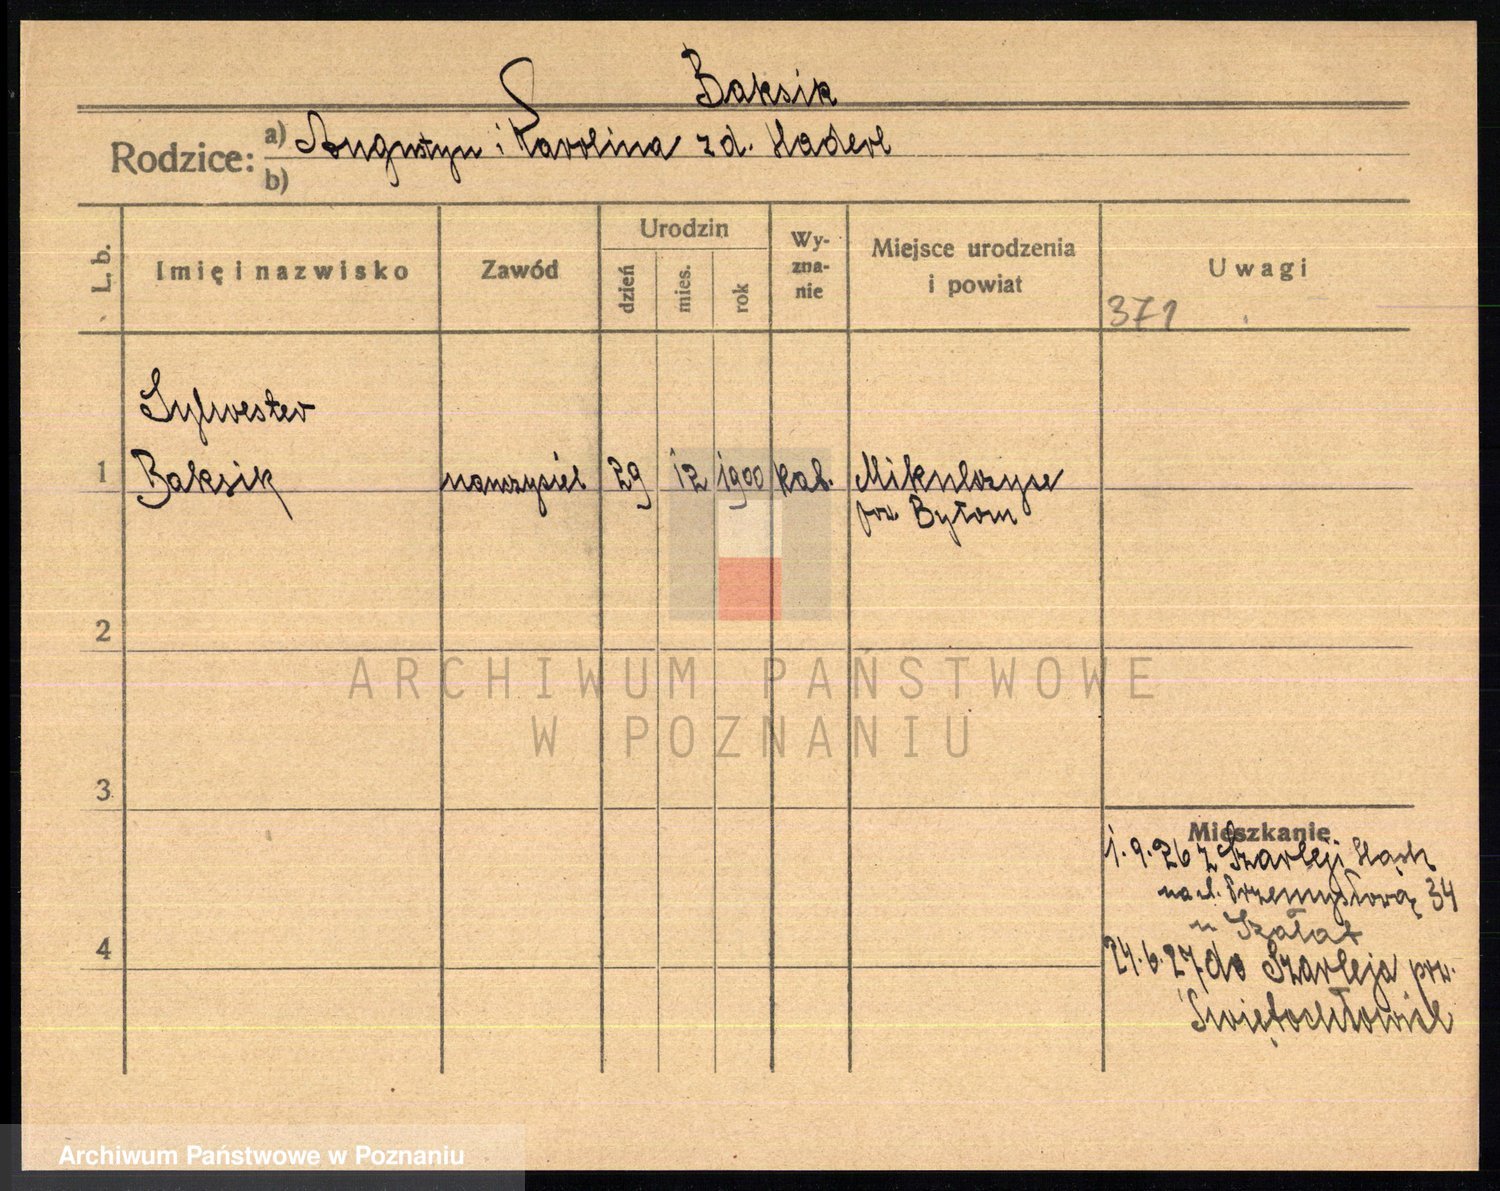 Baksik
Rodzice: a) Augustyn i Karolina z d. Haderl
b)
L. b.
Imię i nazwisko
Zawód
Urodzin
dzień
mies.
rok
Wy-
zna-
nie
Miejsce urodzenia
i powiat
Uwagi
371
Sylwester
1 Baksik nauczyciel 29 12 1900 kat. Mikulczyce
pow. Bytom
2
ARCHIWUM PAŃSTWOWE
W POZNANIU
3
Mieszkanie
1.9.26 z Szarleji Śląsk
na ul. Przemysłową 34
u Szałat
4
24.6.27 do Szarleja pow.
Świętochłowice
Archiwum Państwowe w Poznaniu